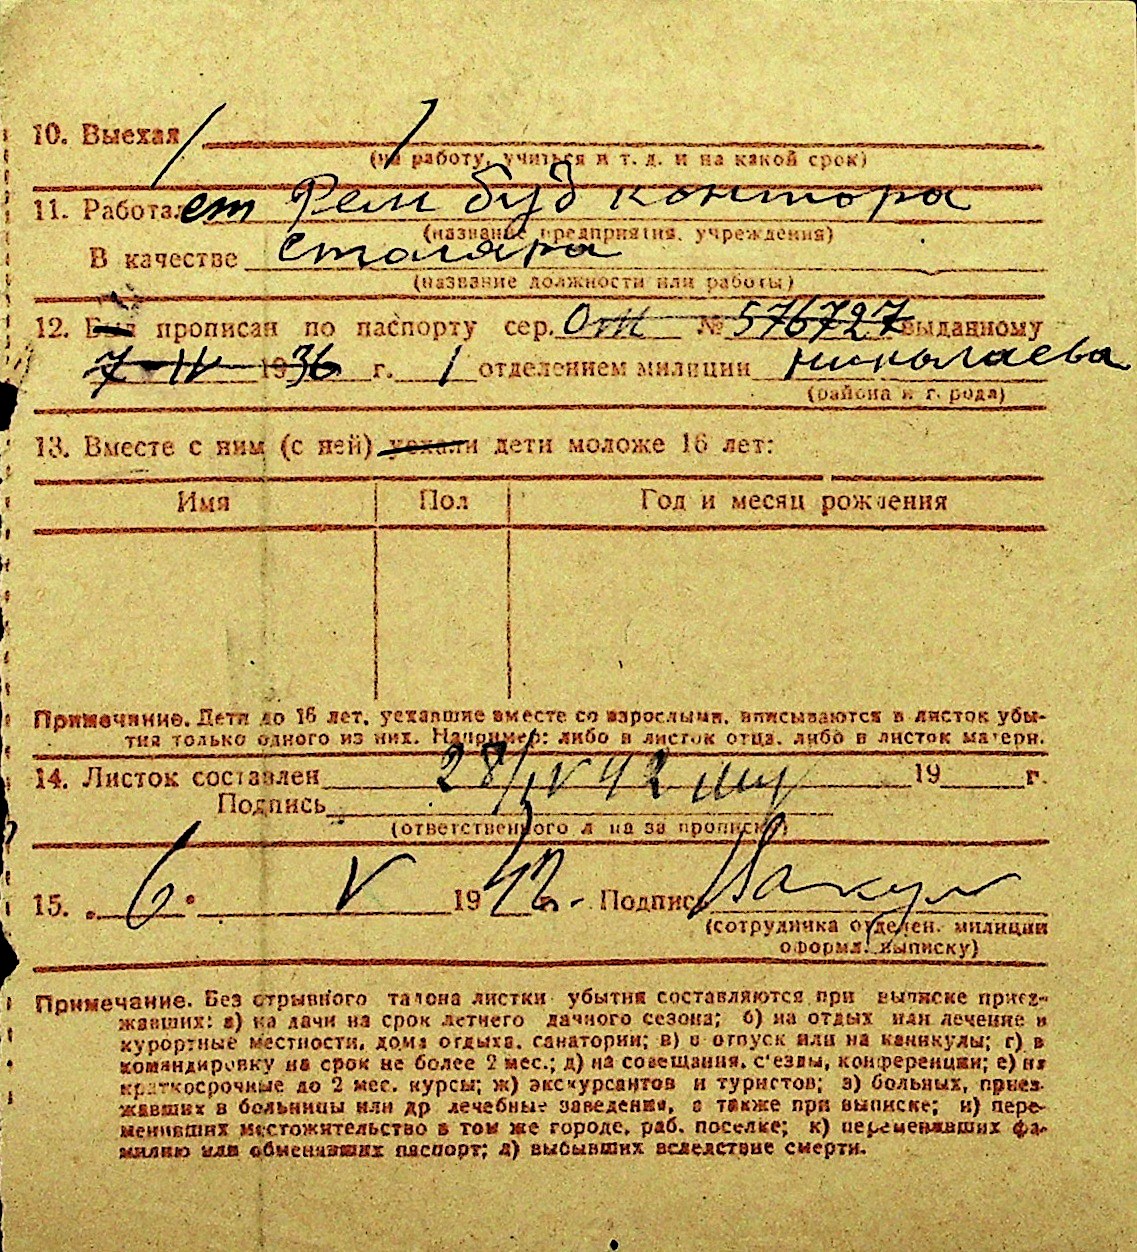 10. Выехал
(на работу, учиться и т. д. и на какой срок)
11. Работает Рем буд контора
(название предприятия, учреждения)
В качестве столяра
(название должности или работы)
12. Был прописан по паспорту сер. № 576727 выданному
7 IV 1936 г. 1 отделением милиции Николаева
(района и города)
13. Вместе с ним (с ней) уехали дети моложе 16 лет:
Имя Пол Год и месяц рождения
Примечание. Дети до 16 лет, уехавшие вместе со взрослыми, вписываются в листок убы-
тия только одного из них. Например: либо в листок отца, либо в листок матери.
14. Листок составлен 28/IV 42 19 г.
Подпись
(ответственного л на за прописку)
15. „ 6 " V 1942 г. Подпись
(сотрудника отделен. милиции
оформл. выписку)
Примечание. Без отрывного талона листки убытия составляются при выписке приез-
жавших: а) на дачи на срок летнего дачного сезона; б) на отдых или лечение в
курортные местности, дома отдыха, санатории; в) в отпуск или на каникулы; г) в
командировку на срок не более 2 мес.; д) на совещания, с'езды, конференции; е) на
краткосрочные до 2 мес. курсы; ж) экскурсантов и туристов; з) больных, приез-
жавших в больницы или др лечебные заведения, а также при выписке; и) пере-
менивших местожительство в том же городе, раб. поселке; к) переменивших фа-
милию или обменявших паспорт; л) выбывших вследствие смерти.